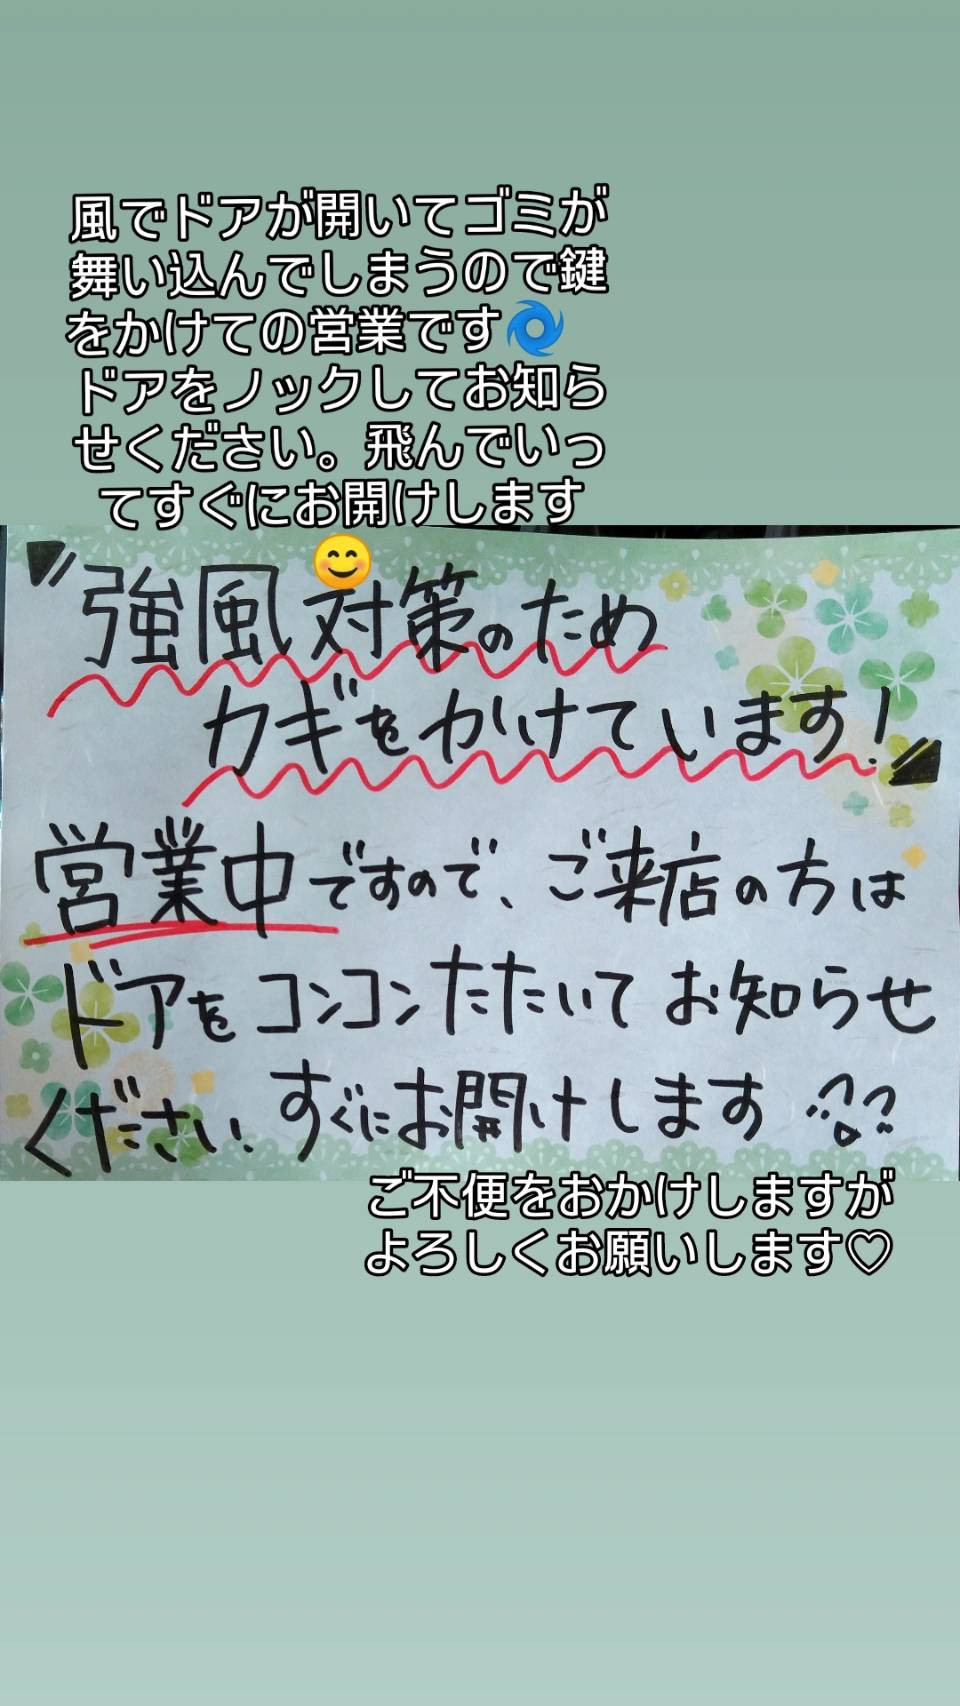 風でドアが開いてゴミが
舞い込んでしまうので鍵
をかけての営業です🌀
ドアをノックしてお知ら
せください。飛んでいっ
てすぐにお開けします
😊
"強風対策のため
カギをかけています!"
営業中ですので、ご来店の方は
ドアをコンコンたたいてお知らせ
ください、すぐにお開けします
ご不便をおかけしますが
よろしくお願いします♡